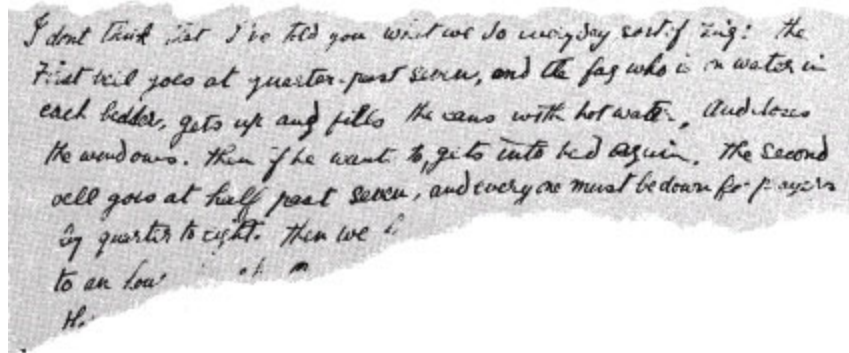 I dont think that I've told you what we do everyday sort of thing: the
First bell goes at quarter-past seven, and the fag who is on water in
each bedder, gets up and fills the cans with hot water, and closes
the windows. then if he wants to, gets into bed again. the second
bell goes at half past seven, and everyone must be down for prayers
by quarter to eight. then we
to an hour